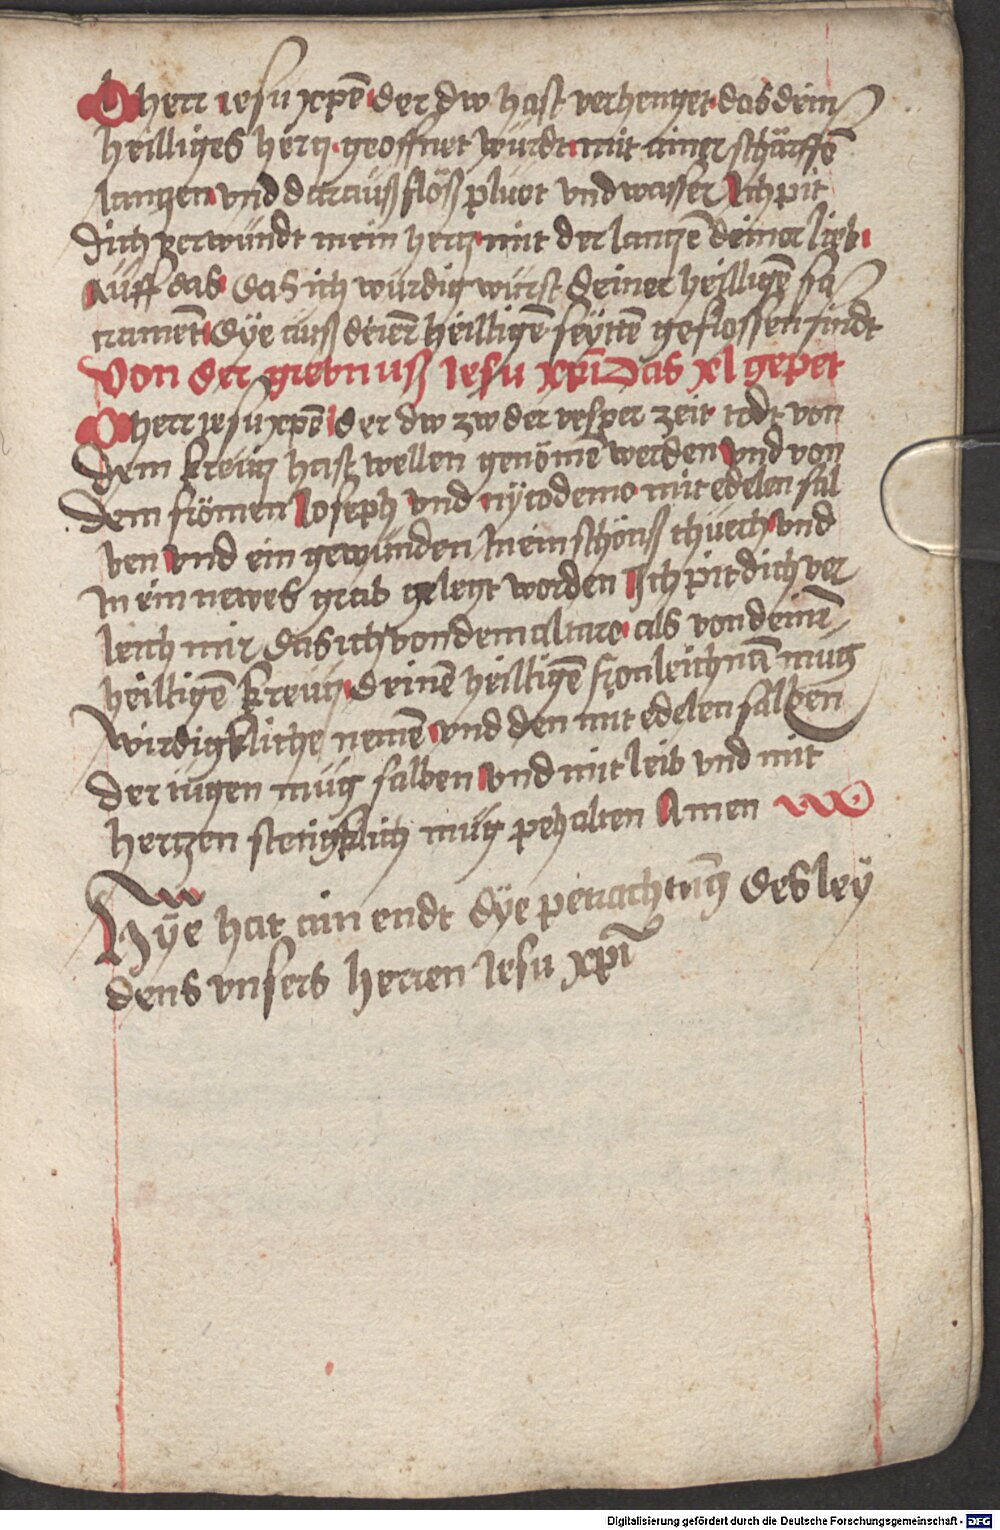 O herr iesu xpē der dw hast verhenget das dein
heilliges hertz geoffnet würdt mit ainer schärffē
lantzen vnd daraüß flöß pluet vnd wasser Ich pit
dich verwündt mein hertz mit der lantzē deiner lieb
Aüff das das ich würdig würst deiner heilligē sa
crament Dÿe auß deiner heilligē seÿttē geflossen sindt
Von der grebnuß Iesu xpi Das xl gepet
O herr iesu xpē der dw zw der vesper zeit todt von
dem kreütz hast wellen genömē werden vnd von
dem frömen Ioseph vnd nycodemo mit edelen sal
ben vnd ein gewünden In ein schönß thuech vnd
In ein newes grab gelegt worden Ich pit dich ver
leich mir das ich von dem altare als von deinē
heilligē kreütz deinē heilligē fronleichnā mug
wirdigkliche nemē vnd den mit edelen salben
der iugen müg salben vnd mit leib vnd mit
hertzen stetigklich müg pehalten Amen
Hÿe hat ain endt dÿe petrachtūg des leÿ
dens vnsers herren Iesu xpi
Digitalisierung gefördert durch die Deutsche Forschungsgemeinschaft - DFG